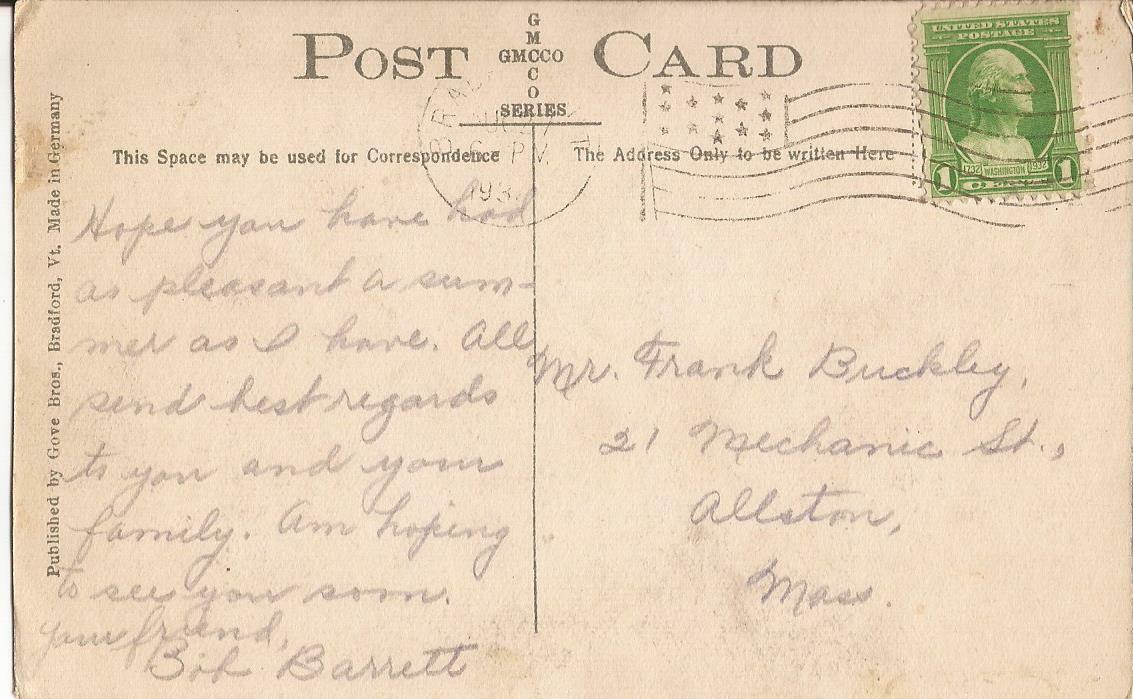 POST CARD
G
M
GMCCO
C
O
SERIES
This Space may be used for Correspondence
The Address Only to be written Here
UNITED STATES
POSTAGE
1732 WASHINGTON 1932
1 CENT 1
6 PM
193
Published by Gove Bros., Bradford, Vt. Made in Germany
Hope you have had
as pleasant a sum-
mer as I have. All
send best regards
to you and your
family. Am hoping
to see you soon.
Your friend,
Bob Barrett
Mr. Frank Buckley,
21 Mechanic St.,
Allston,
Mass.